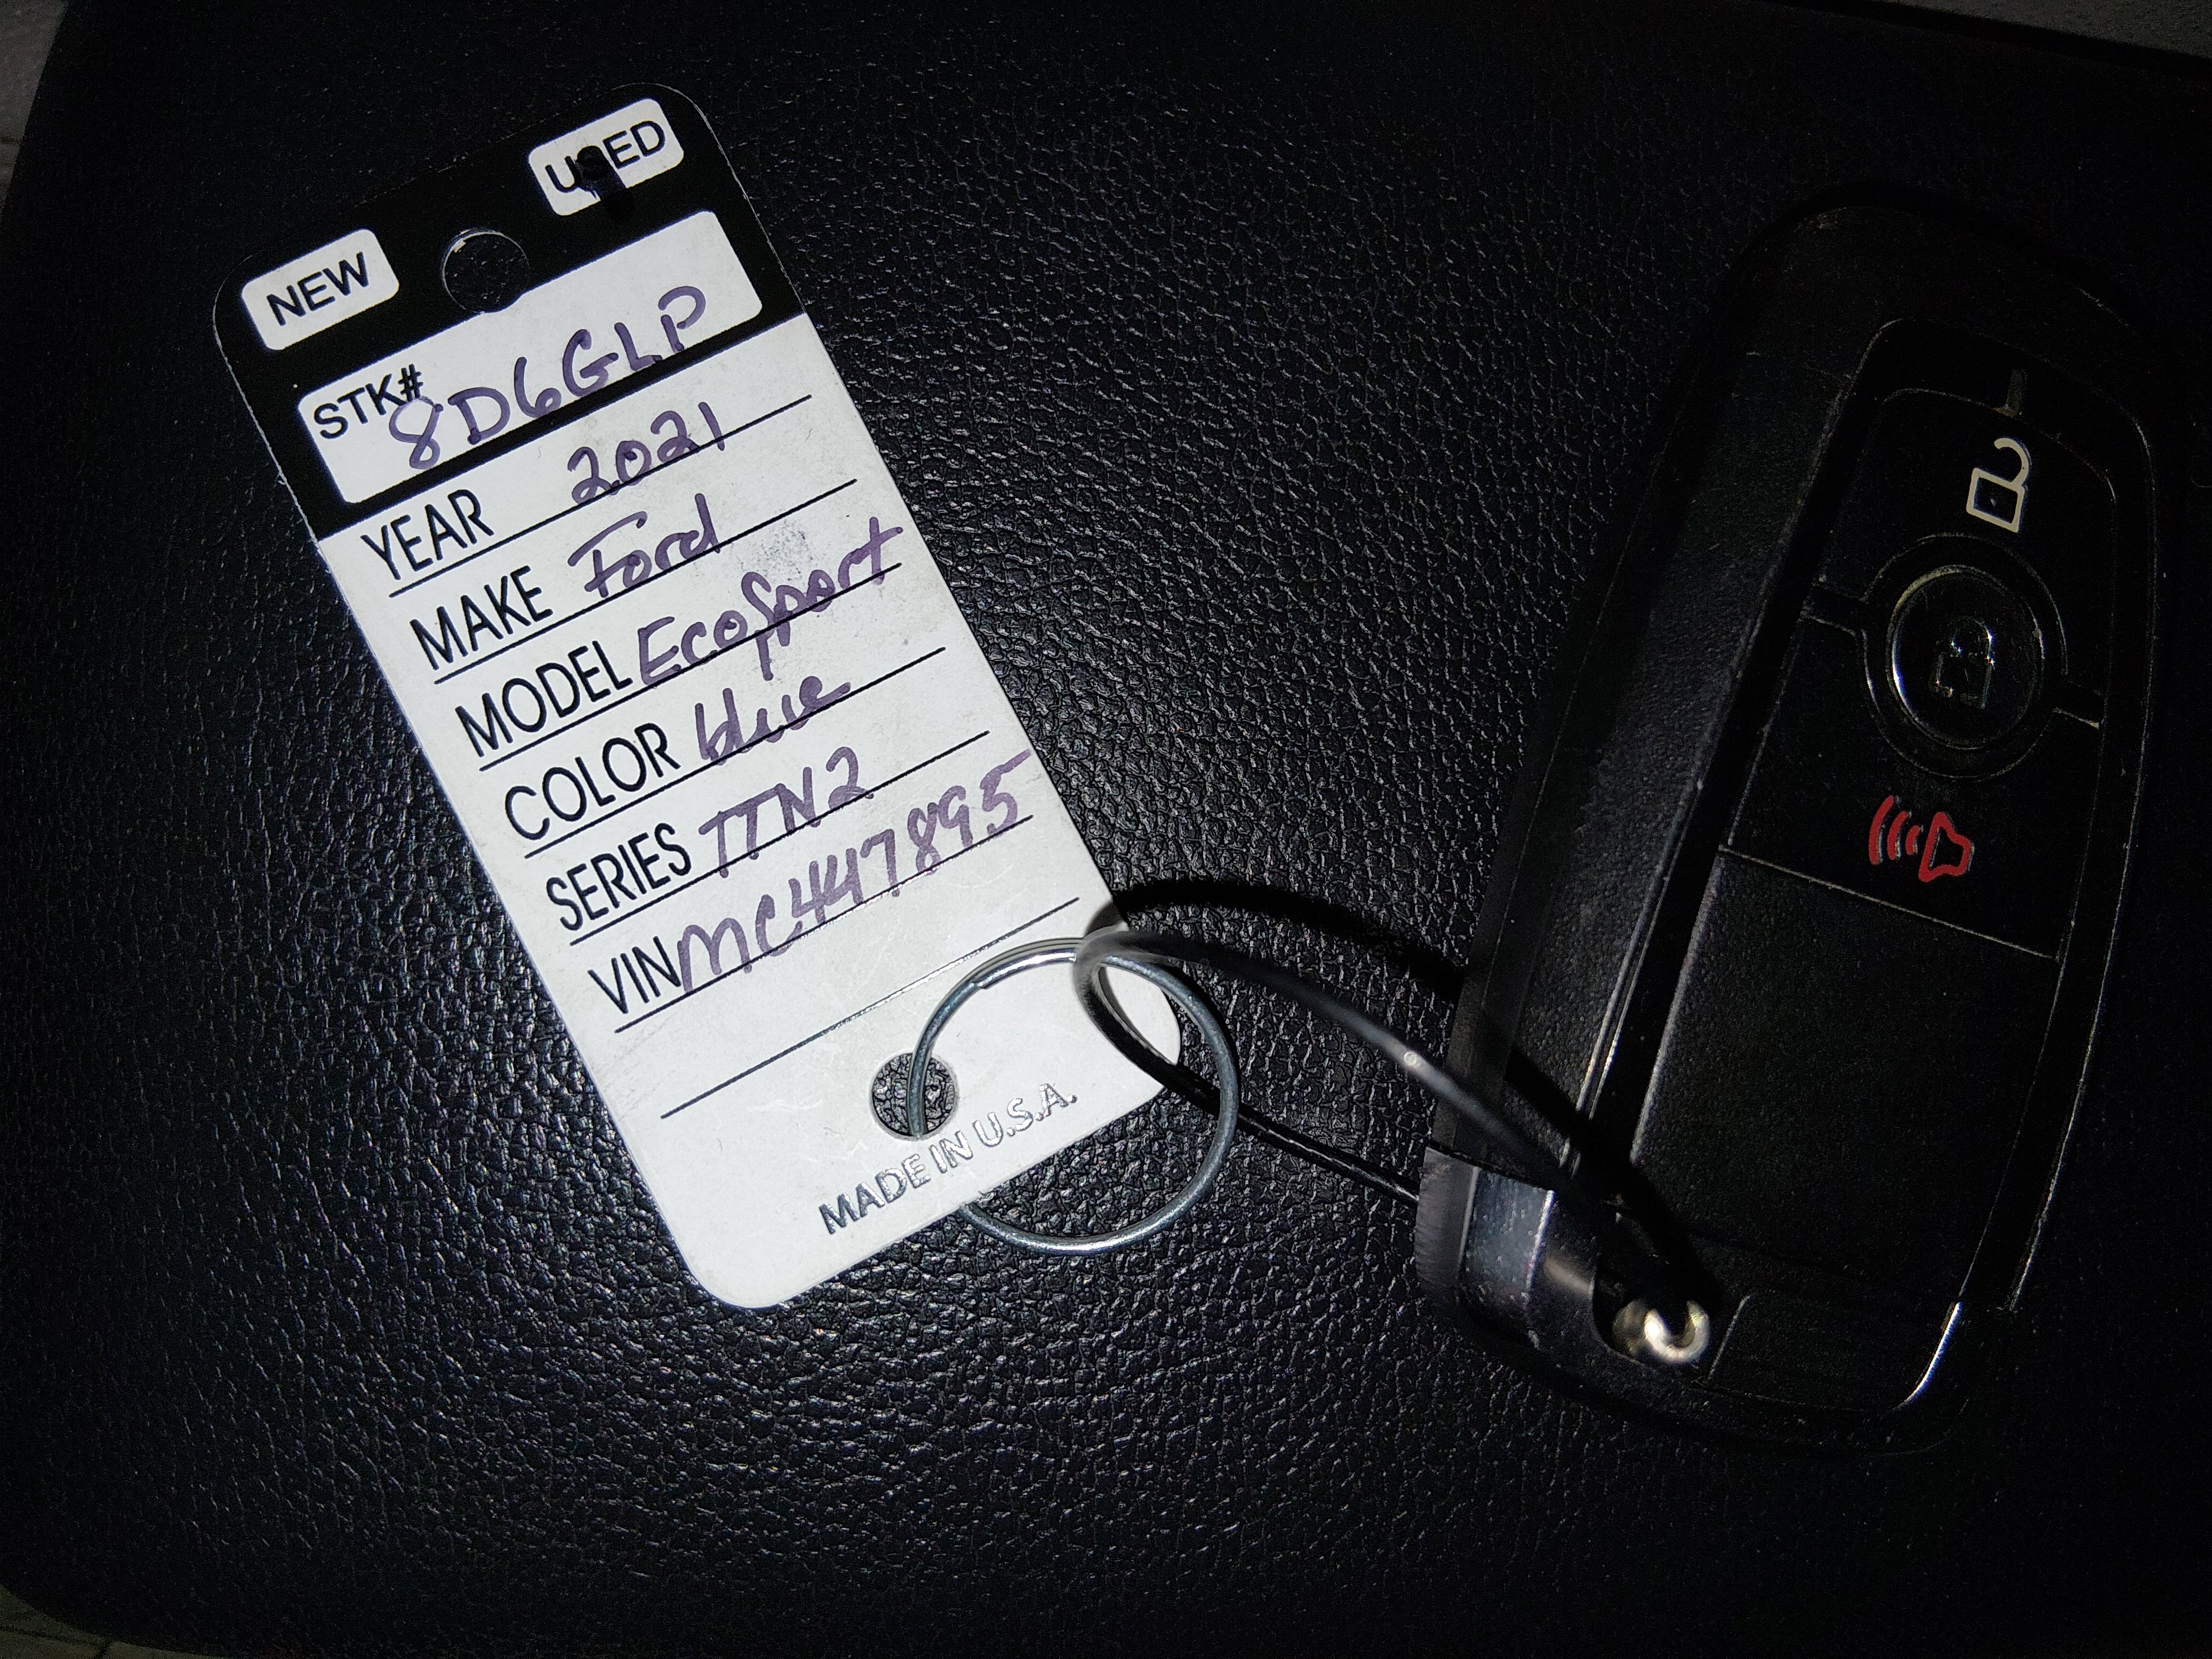 NEW USED
STK# 8D6GLP
YEAR 2021
MAKE Ford
MODEL EcoSport
COLOR blue
SERIES TTN2
VIN MC447895
MADE IN U.S.A.